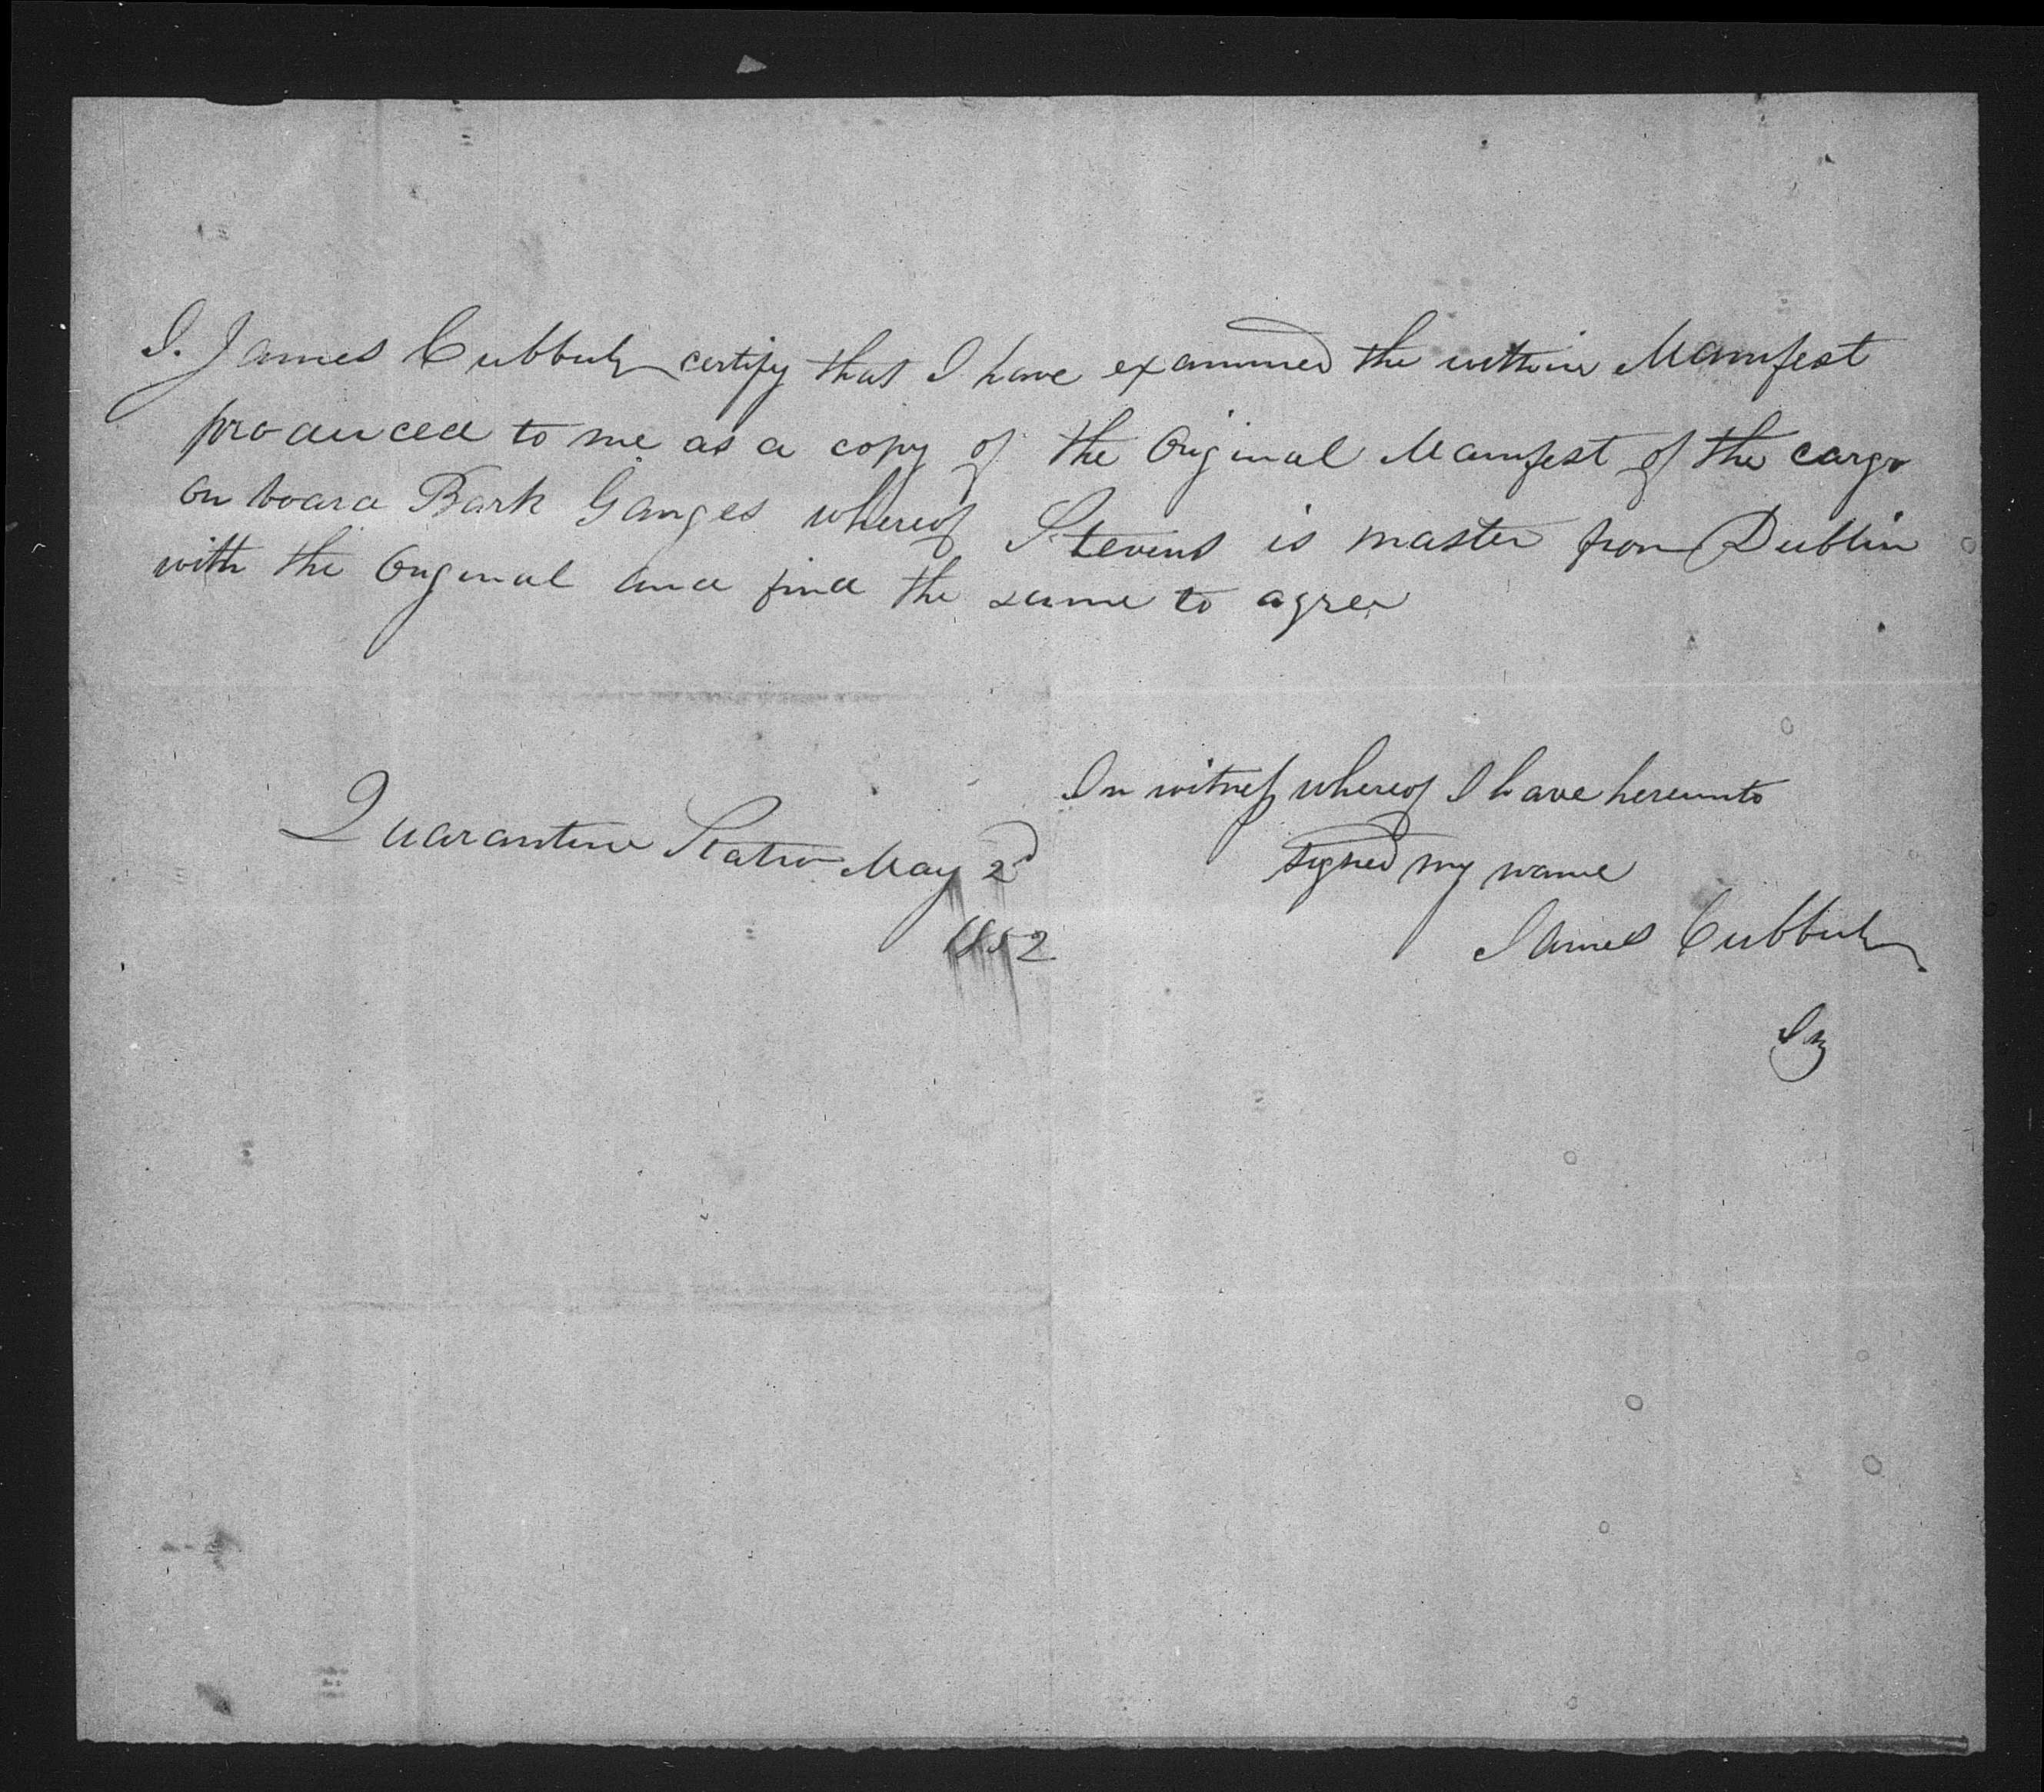 I. James Cubberly certify that I have examined the within Manifest
produced to me as a copy of the Original Manifest of the cargo
on board Bark Ganges whereof Stevens is master from Dublin
with the Original and find the same to agree
In witness whereof I have hereunto
signed my name
Quarantine Station May 2d
1852
James Cubberly